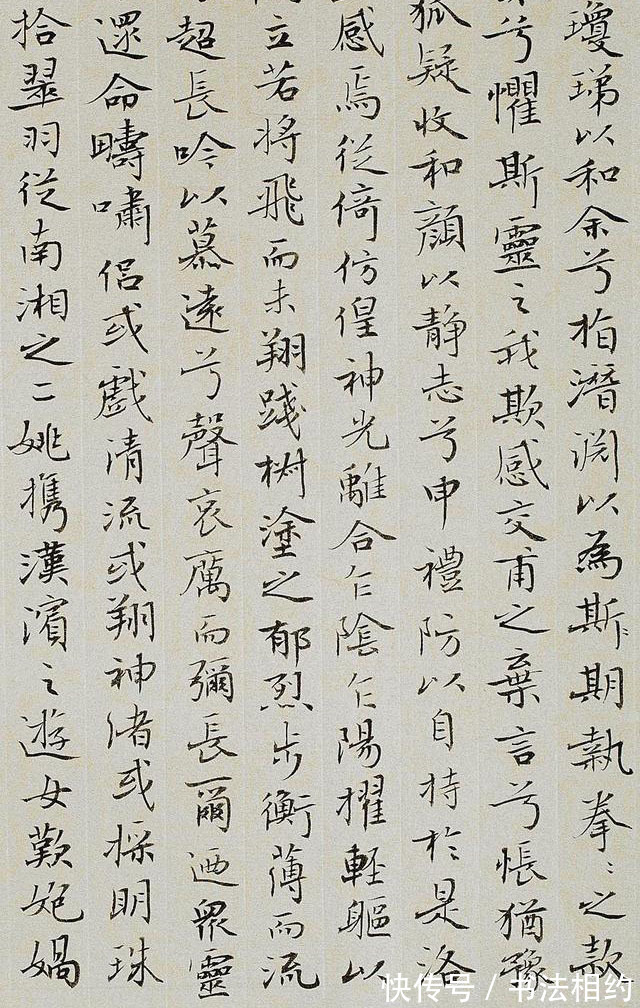 瓊珶以和余兮指潛渊以為斯期執拳〻之款
兮懼斯靈之我欺感交甫之棄言兮悵猶豫
狐疑收和顔以静志兮申禮防以自持於是洛
感焉從倚仿偟神光離合乍陰乍陽擢輕軀以
立若將飛而未翔踐樹塗之郁烈步衡薄而流
超長吟以慕遠兮聲哀厲而彌長爾迺衆靈
還命疇嘯侣或戲清流或翔神渚或採明珠
拾翠羽從南湘之二姚携漢濱之遊女歎匏媧
快传号/书法相约